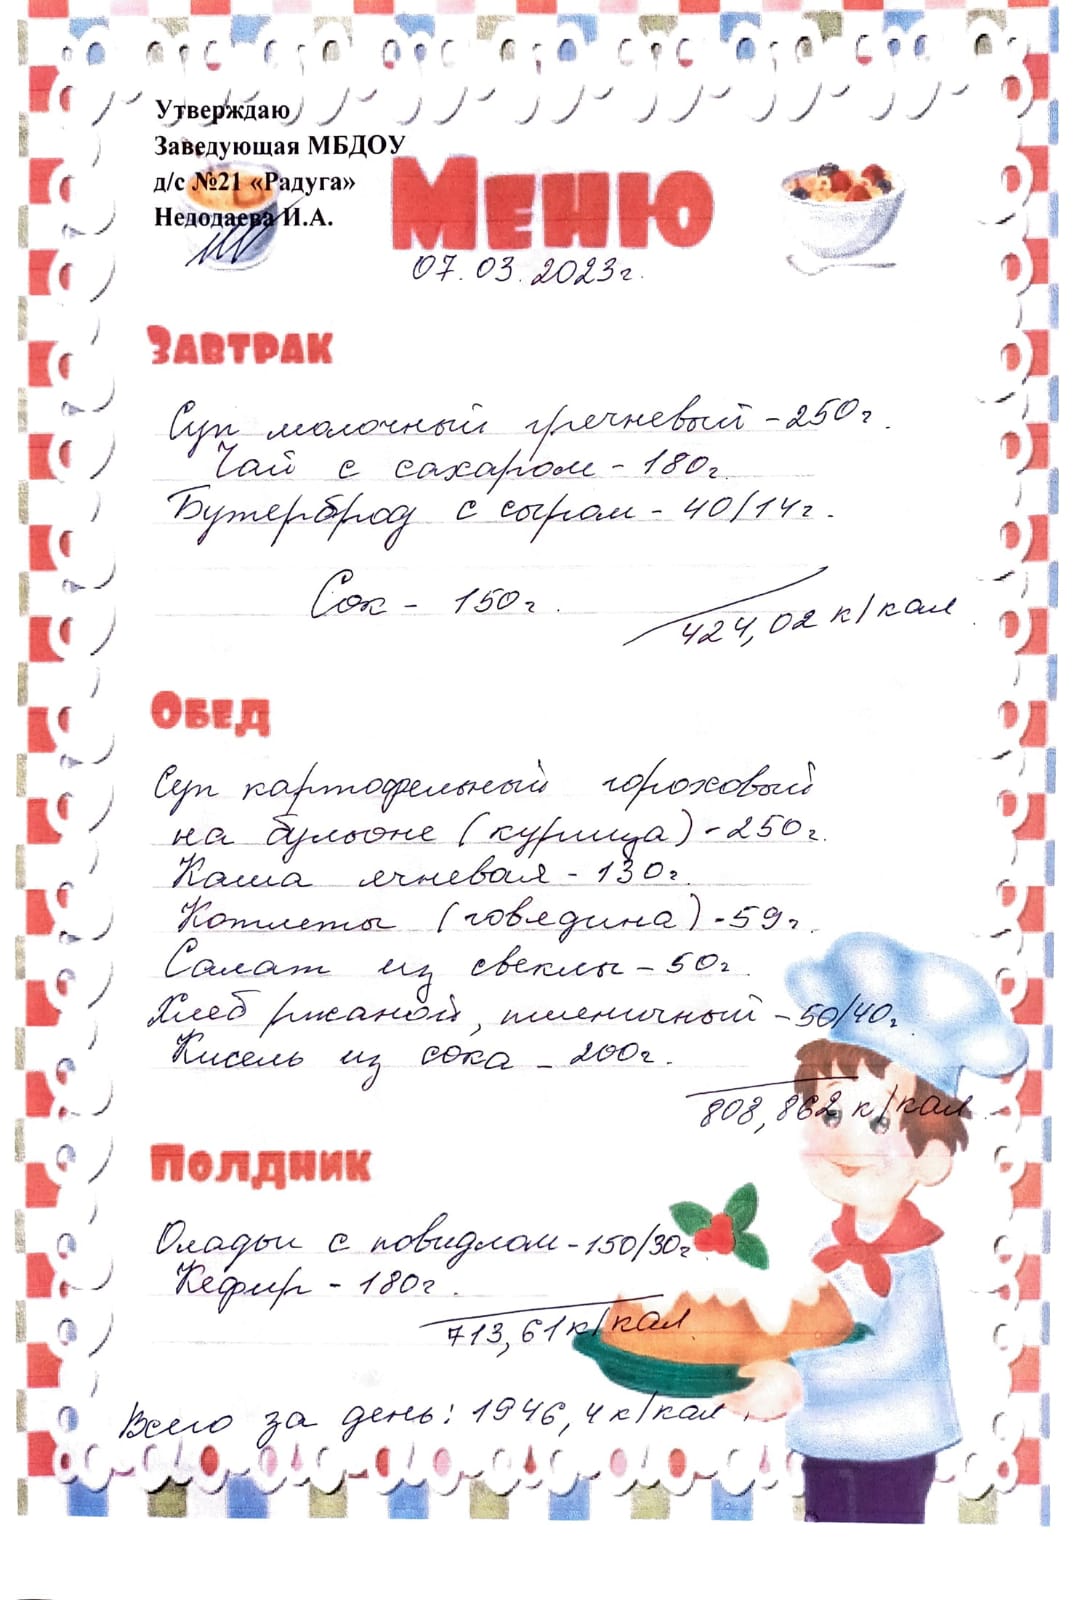 Утверждаю
Заведующая МБДОУ
д/с №21 «Радуга»
Недодаева И.А.
Меню
07.03.2023г.
Завтрак
Суп молочный гречневый - 250г.
Чай с сахаром - 180г.
Бутерброд с сыром - 40/14г.
Сок - 150г.
424,02 к/кал
Обед
Суп картофельный гороховый
на бульоне (курица) - 250г.
Каша ячневая - 130г.
Котлеты (говядина) - 59г.
Салат из свеклы - 50г.
Хлеб ржаной, пшеничный - 50/40г.
Кисель из сока - 200г.
808,862 к/кал
Полдник
Оладьи с повидлом - 150/30г
Кефир - 180г.
713,61 к/кал
Всего за день: 1946,4 к/кал.